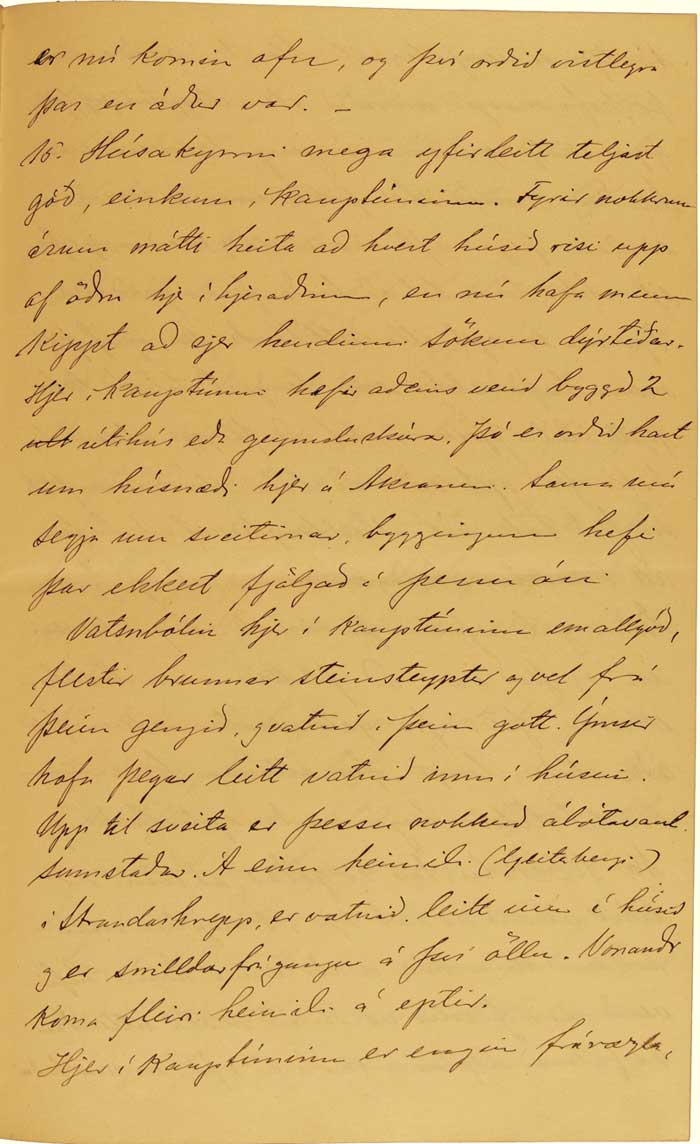 er nú komin ofn, og því orðið vistlegra
þar en áður var. –
15. Húsakynni mega yfirleitt teljast
góð, einkum í kauptúninu. Fyrir nokkrum
árum mátti heita að hvert húsið risi upp
af öðru hjer í hjeraðinu, en nú hafa menn
kippt að sjer hendinni sökum dýrtíðar.
Hjer í kauptúninu hefir aðeins verið byggð 2
útihús eða geymsluskúrar. Þó er orðið hart
um húsnæði hjer á Akranesi. Sama má
segja um sveitirnar, byggingum hefir
þar ekkert fjölgað á þessu ári.
Vatnsbólin hjer í kauptúninu eru allgóð,
flestir brunnar steinsteyptir og vel frá
þeim gengið, og vatnið í þeim gott. Ýmsir
hafa þegar leitt vatnið inn í húsin.
Upp til sveita er þessu nokkuð ábótavant
sumstaðar. Á einu heimili (Geitabergi)
í Strandarhrepp, er vatnið leitt inn í húsið
og er snilldarfrágangur á því öllu. Vonandi
koma fleiri heimili á eptir.
Hjer í kauptúninu er engin frárensla,